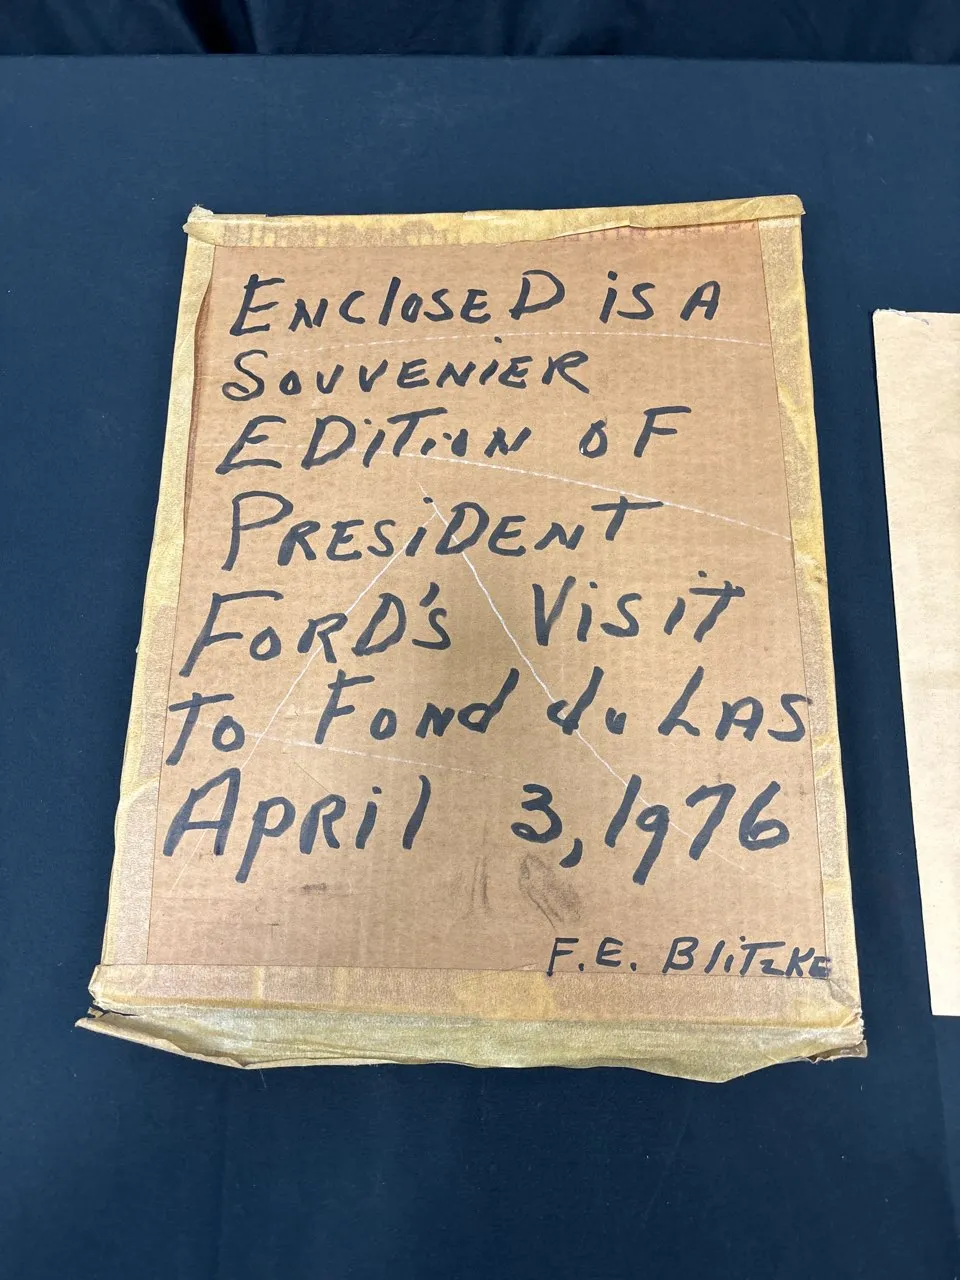 ENClOSED iS A
SOUVENIER
EDiTiON OF
PRESiDENT
FORD'S ViSiT
TO FONd du LAS
APRil 3, 1976
F.E. BliTZKE